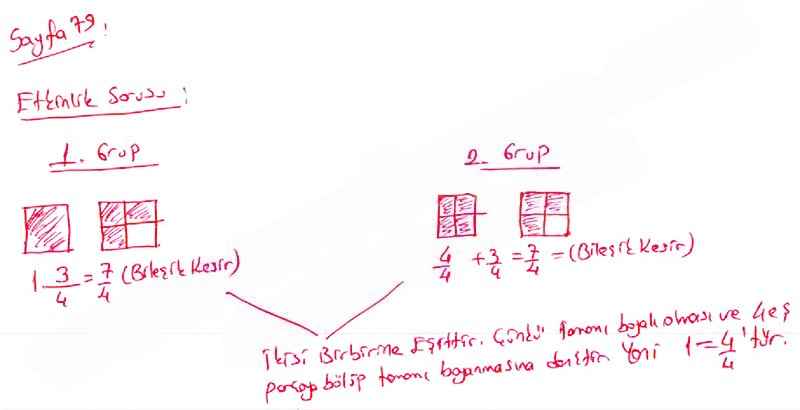 Sayfa 79:
Etkinlik Sorusu:
1. Grup
2. Grup
1 3/4 = 7/4 (Bileşik Kesir)
4/4 + 3/4 = 7/4 = (Bileşik Kesir)
İkisi Birbirine Eşittir. Çünkü tamamı boyalı olması ve 4 eş
parçaya bölüp tamamı boyanmasına denktir. Yani 1 = 4/4 'tür.